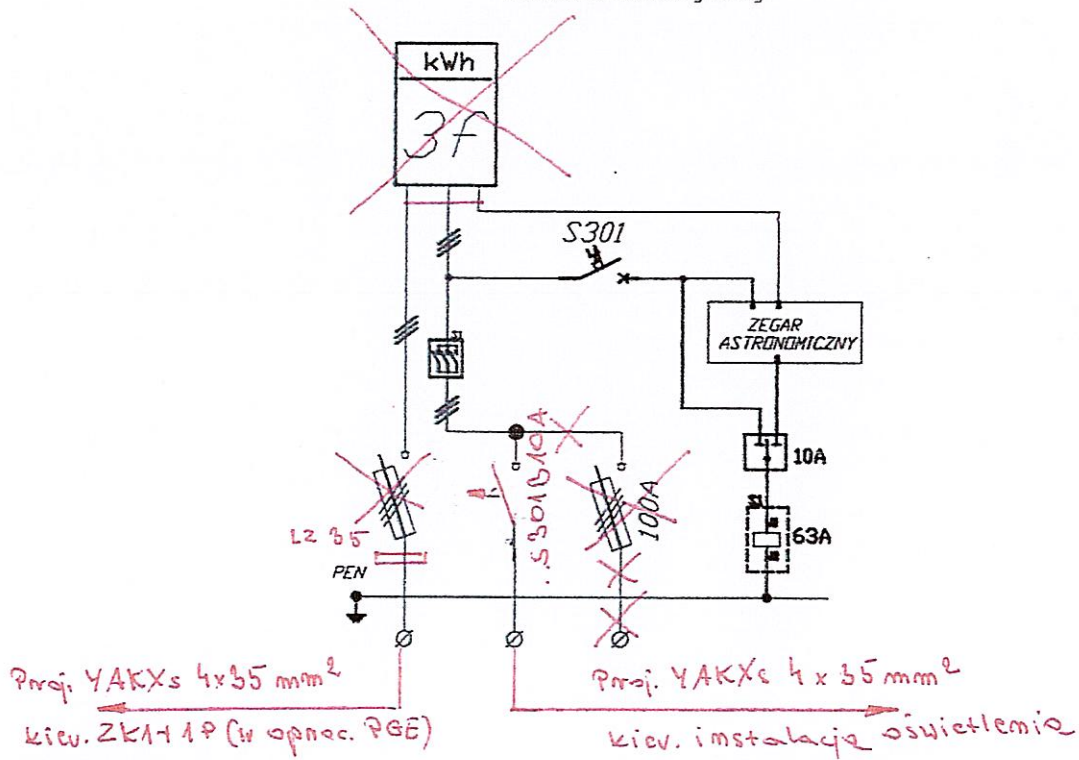 kWh
3f
S301
ZEGAR
ASTRONOMICZNY
S1
S301B10A
10A
100A
S1
63A
LZ 35
PEN
Proj. YAKXs 4x35 mm²
kier. ZK1+1P (w oprac. PGE)
Proj. YAKXs 4 x 35 mm²
kier. instalacja oświetlenia